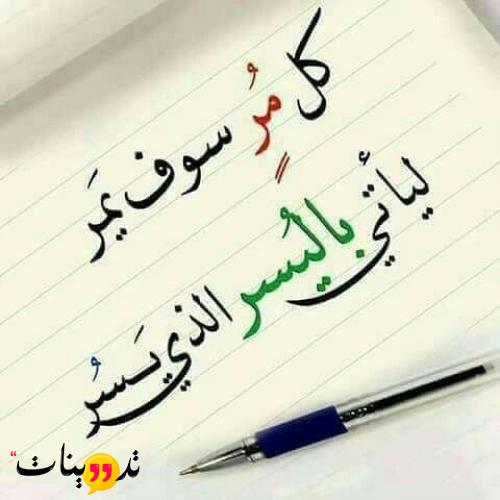 كل مُرٍ سوف يمَر
ليأتي باليُسر الذي يَسُر
تدوينات